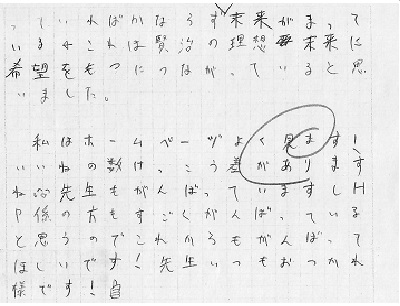 っていればかならず未来がまって
いる。これは賢治の理想 未来に
希望をもつにつながっていると思
いました。
私はホームページよく見ます!
いいねの数け、こう差があります
ね 先生もがんばっていますしH
P係の方もすごくがんばっている
と思うのでこれからもがんばって
ほしいです!先生いつもおつかれ
様です!